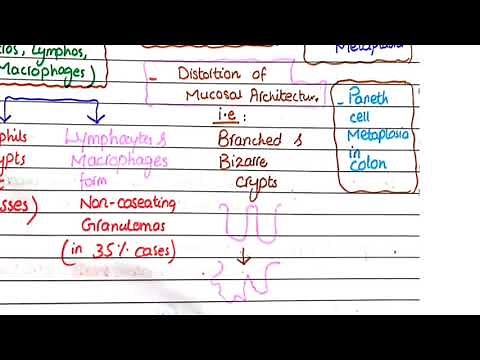 Lymphos,
Macrophages)
Metaplasia
- Distortion of
Mucosal Architecture.
i.e:
Branched &
Bizarre
crypts
- Paneth
cell
Metaplasia
in
colon
Lymphocytes &
Macrophages
form
Non-caseating
Granulomas
(in 35% cases)